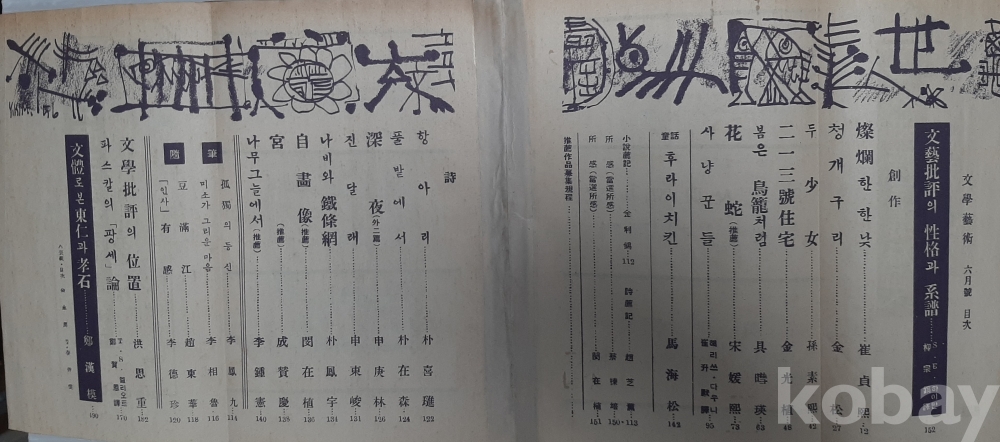 文學藝術 六月號 目次
文藝批評의 性格과 系譜 152
創作
燦爛한 한낮 崔貞熙 12
청개구리 金松 27
두少女 孫素熙 42
二一三號住宅 金光植 48
봄은 鳥籠처럼 具 瑛 63
花蛇(推薦) 宋媛熙 73
사냥꾼들 95
童話 후라이치킨 馬海松 142
小說薦記 金利錫 112
詩薦記 趙芝薰 113
所感(當選所感) 150
所感(當選所感) 閔在植 151
推薦作品募集規程
詩
항아리 朴喜璡 122
풀밭에서 朴在森 124
深夜(外二篇) 申庚林 126
진달래 申東峻 131
나비와 鐵條網 朴鳳宇 134
自畵像(推薦) 閔在植 136
宮(推薦) 成贊慶 138
나무그늘에서(推薦) 李鍾憲 140
隨筆
孤獨의 동신 李鳳九 114
미소가 그리운 마음 李相魯 116
豆滿江 趙東華 118
「인사」有感 李德珍 120
文學批評의 位置 洪思重 182
파스칼의 「팡세」論 T·S·엘리오트 170
文體로 본 東仁과 孝石 鄭漢模 190
kobay